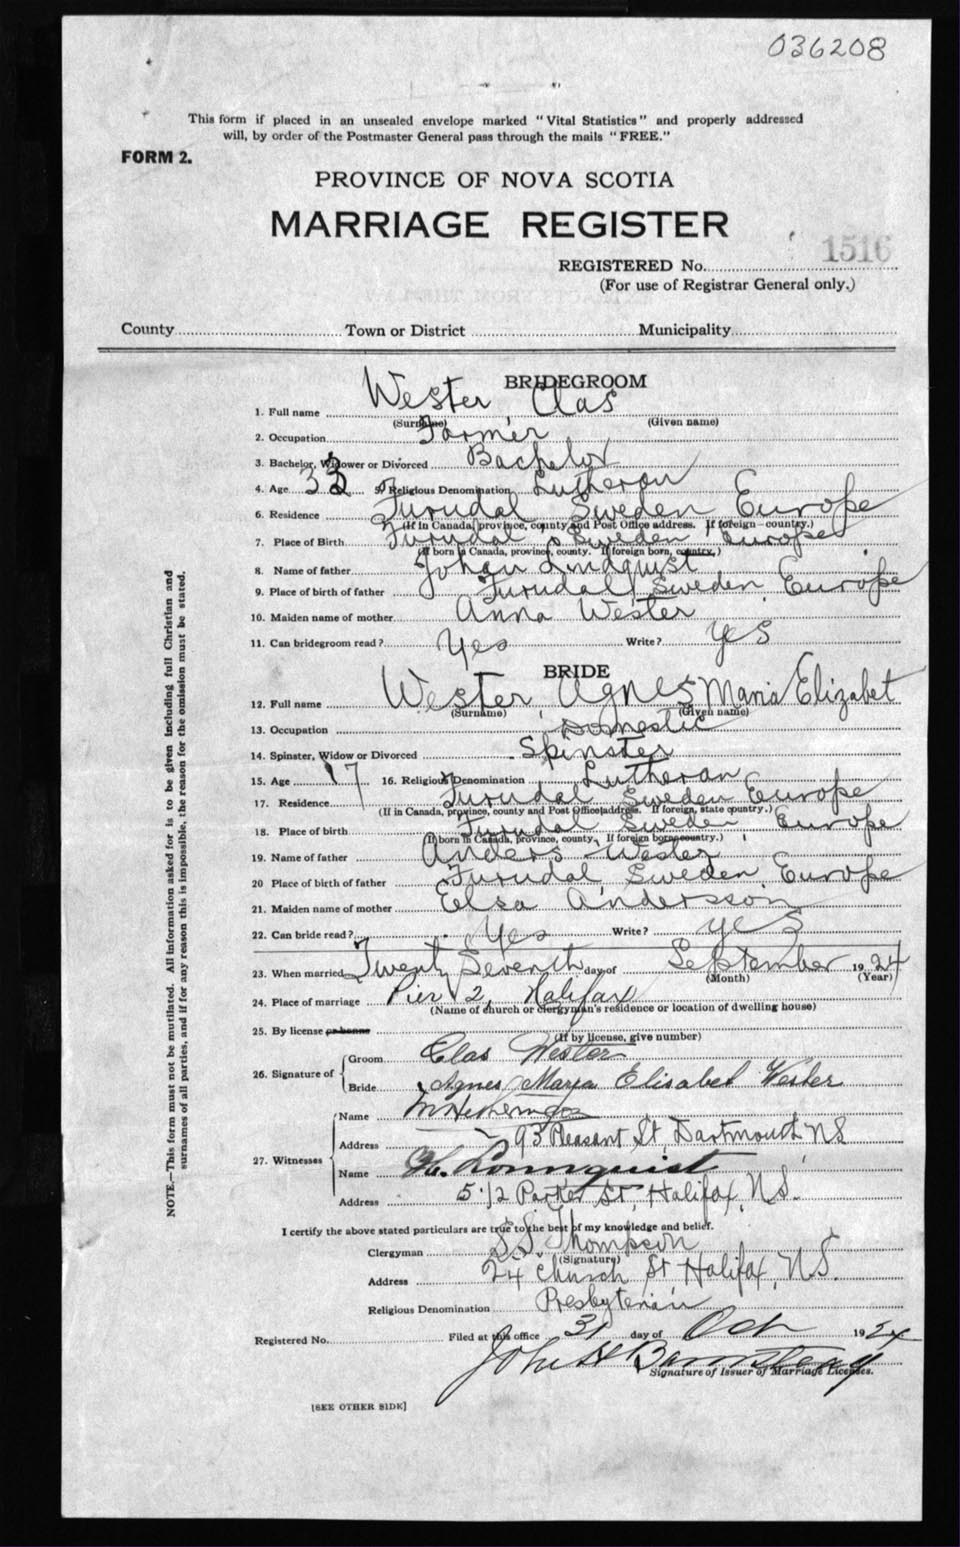 036208
This form if placed in an unsealed envelope marked "Vital Statistics" and properly addressed
will, by order of the Postmaster General pass through the mails "FREE."
FORM 2.
PROVINCE OF NOVA SCOTIA
MARRIAGE REGISTER
REGISTERED No. 1516
(For use of Registrar General only.)
County Town or District Municipality
BRIDEGROOM
1. Full name Wester Clas
(Surname) (Given name)
2. Occupation Farmer
3. Bachelor, Widower or Divorced Bachelor
4. Age 33 5. Religious Denomination Lutheran
6. Residence Furudal Sweden Europe
(If in Canada, province, county and Post Office address. If foreign—country.)
7. Place of Birth Furudal Sweden Europe
(If born in Canada, province, county. If foreign born, country.)
8. Name of father Johan Lindquist
9. Place of birth of father Furudal Sweden Europe
10. Maiden name of mother Anna Wester
11. Can bridegroom read? Yes Write? Yes
BRIDE
12. Full name Wester Agnes Maria Elizabet
(Surname) (Given name)
13. Occupation Domestic
14. Spinster, Widow or Divorced Spinster
15. Age 17 16. Religious Denomination Lutheran
17. Residence Furudal Sweden Europe
(If in Canada, province, county and Post Office address. If foreign, state country.)
18. Place of birth Furudal Sweden Europe
(If born in Canada, province, county, If foreign born country.)
19. Name of father Anders Wester
20 Place of birth of father Furudal, Sweden, Europe
21. Maiden name of mother Elsa Andersson
22. Can bride read? Yes Write? yes
23. When married Twenty Seventh day of September 1924
(Month) (Year)
24. Place of marriage Pier 2, Halifax
(Name of church or clergyman's residence or location of dwelling house)
25. By license or banns
(If by license, give number)
26. Signature of Groom Clas Wester
Bride Agnes Maria Elisabet Wester
27. Witnesses
Name
Address 93 Pleasant St, Dartmouth NS
Name Lonnquist
Address 51/2 Parker St, Halifax, N.S.
I certify the above stated particulars are true to the best of my knowledge and belief.
Clergyman Thompson
(Signature)
Address 24 Church St Halifax, N.S.
Religious Denomination Presbyterian
Registered No. Filed at this office 31 day of Oct 1924
John H Barnstead
Signature of Issuer of Marriage Licenses.
[SEE OTHER SIDE]
NOTE.—This form must not be mutilated. All information asked for is to be given including full Christian and
surnames of all parties, and if for any reason this is impossible, the reason for the omission must be stated.